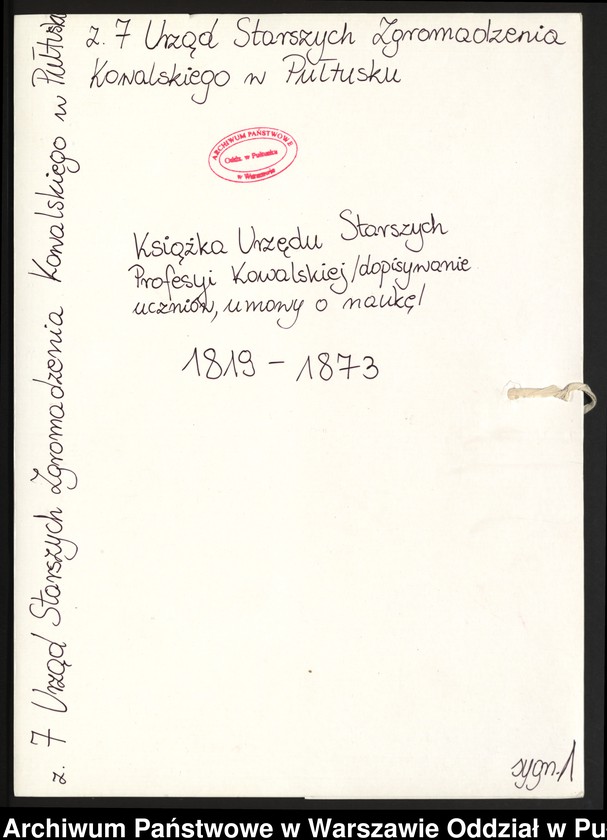 z. 7 Urząd Starszych Zgromadzenia
Kowalskiego w Pułtusku
ARCHIWUM PAŃSTWOWE
Oddz. w Pułtusku
w Warszawie
Książka Urzędu Starszych
Profesyi Kowalskiej /dopisywanie
uczniów, umowy o naukę/
1819 - 1873
z. 7 Urząd Starszych Zgromadzenia Kowalskiego w Pułtusku
sygn. 1
Archiwum Państwowe w Warszawie Oddział w Pu